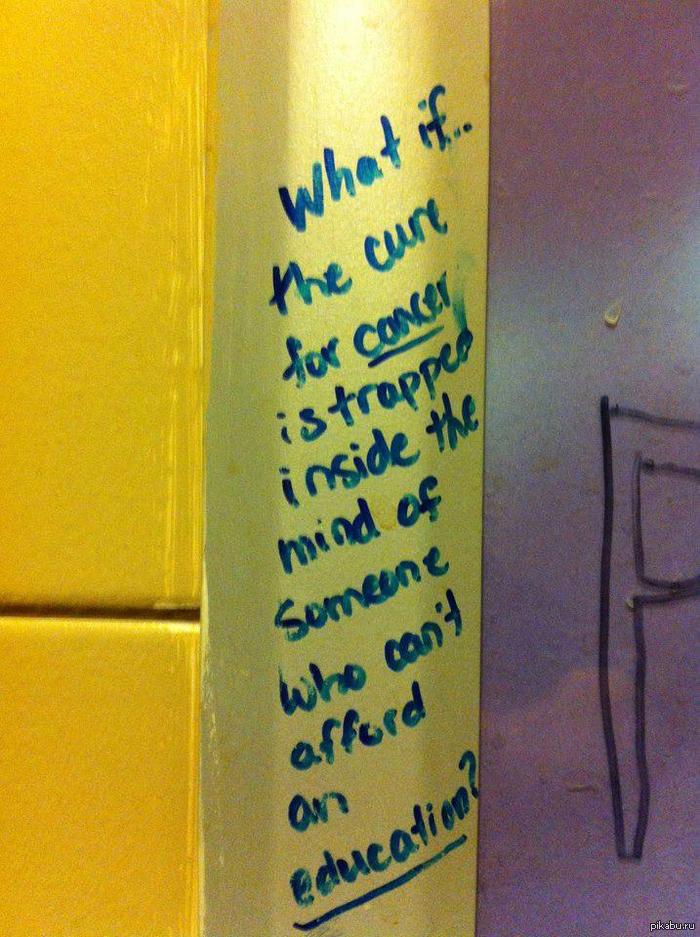 What if...
the cure
for cancer
is trapped
inside the
mind of
someone
who can't
afford
an
education?
P
pikabu.ru